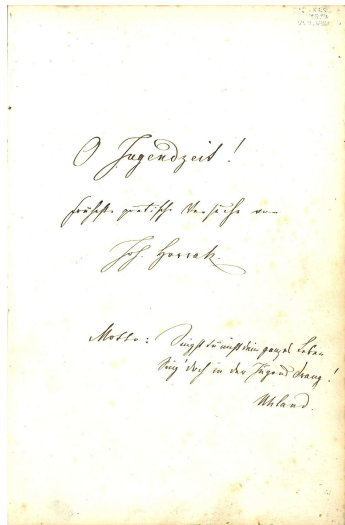 O Jugendzeit!
Früheste poetische Versuche von
Joh. Horrak.
Motto: Singst du nicht dein ganzes Leben
Sing' doch in der Jugend Drang!
Uhland.